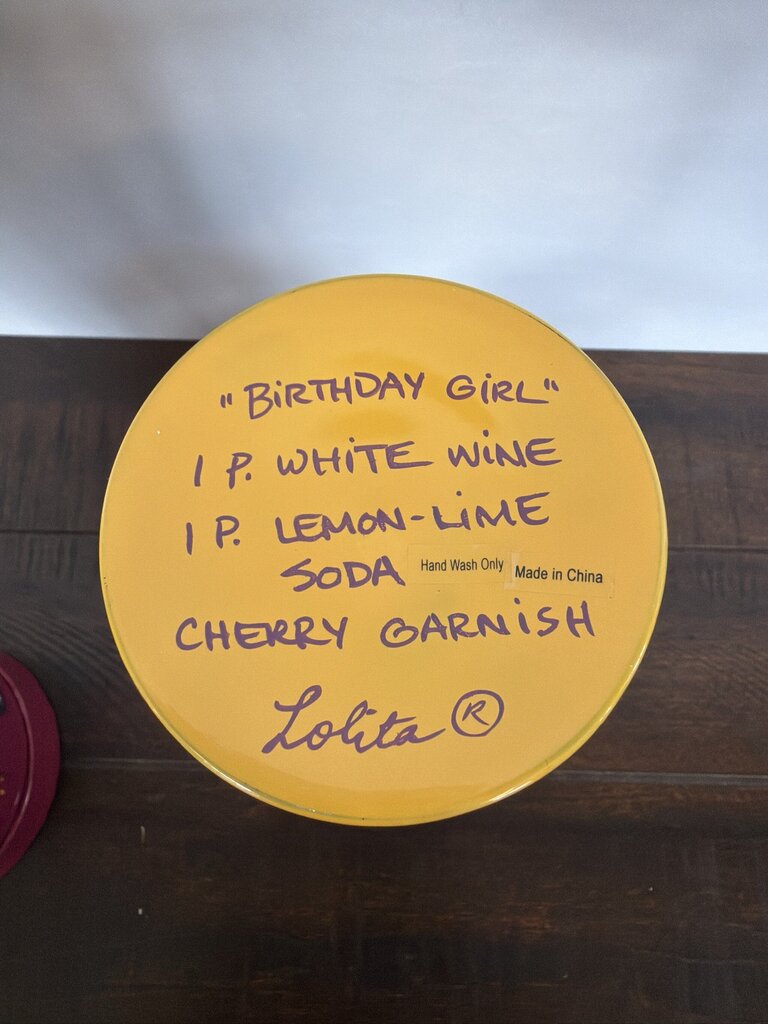 "BiRTHDAY GiRL"
1 P. WHiTE WiNE
1 P. LEMON-LiME
SODA
Hand Wash Only
Made in China
CHERRY GARNiSH
Lolita ®